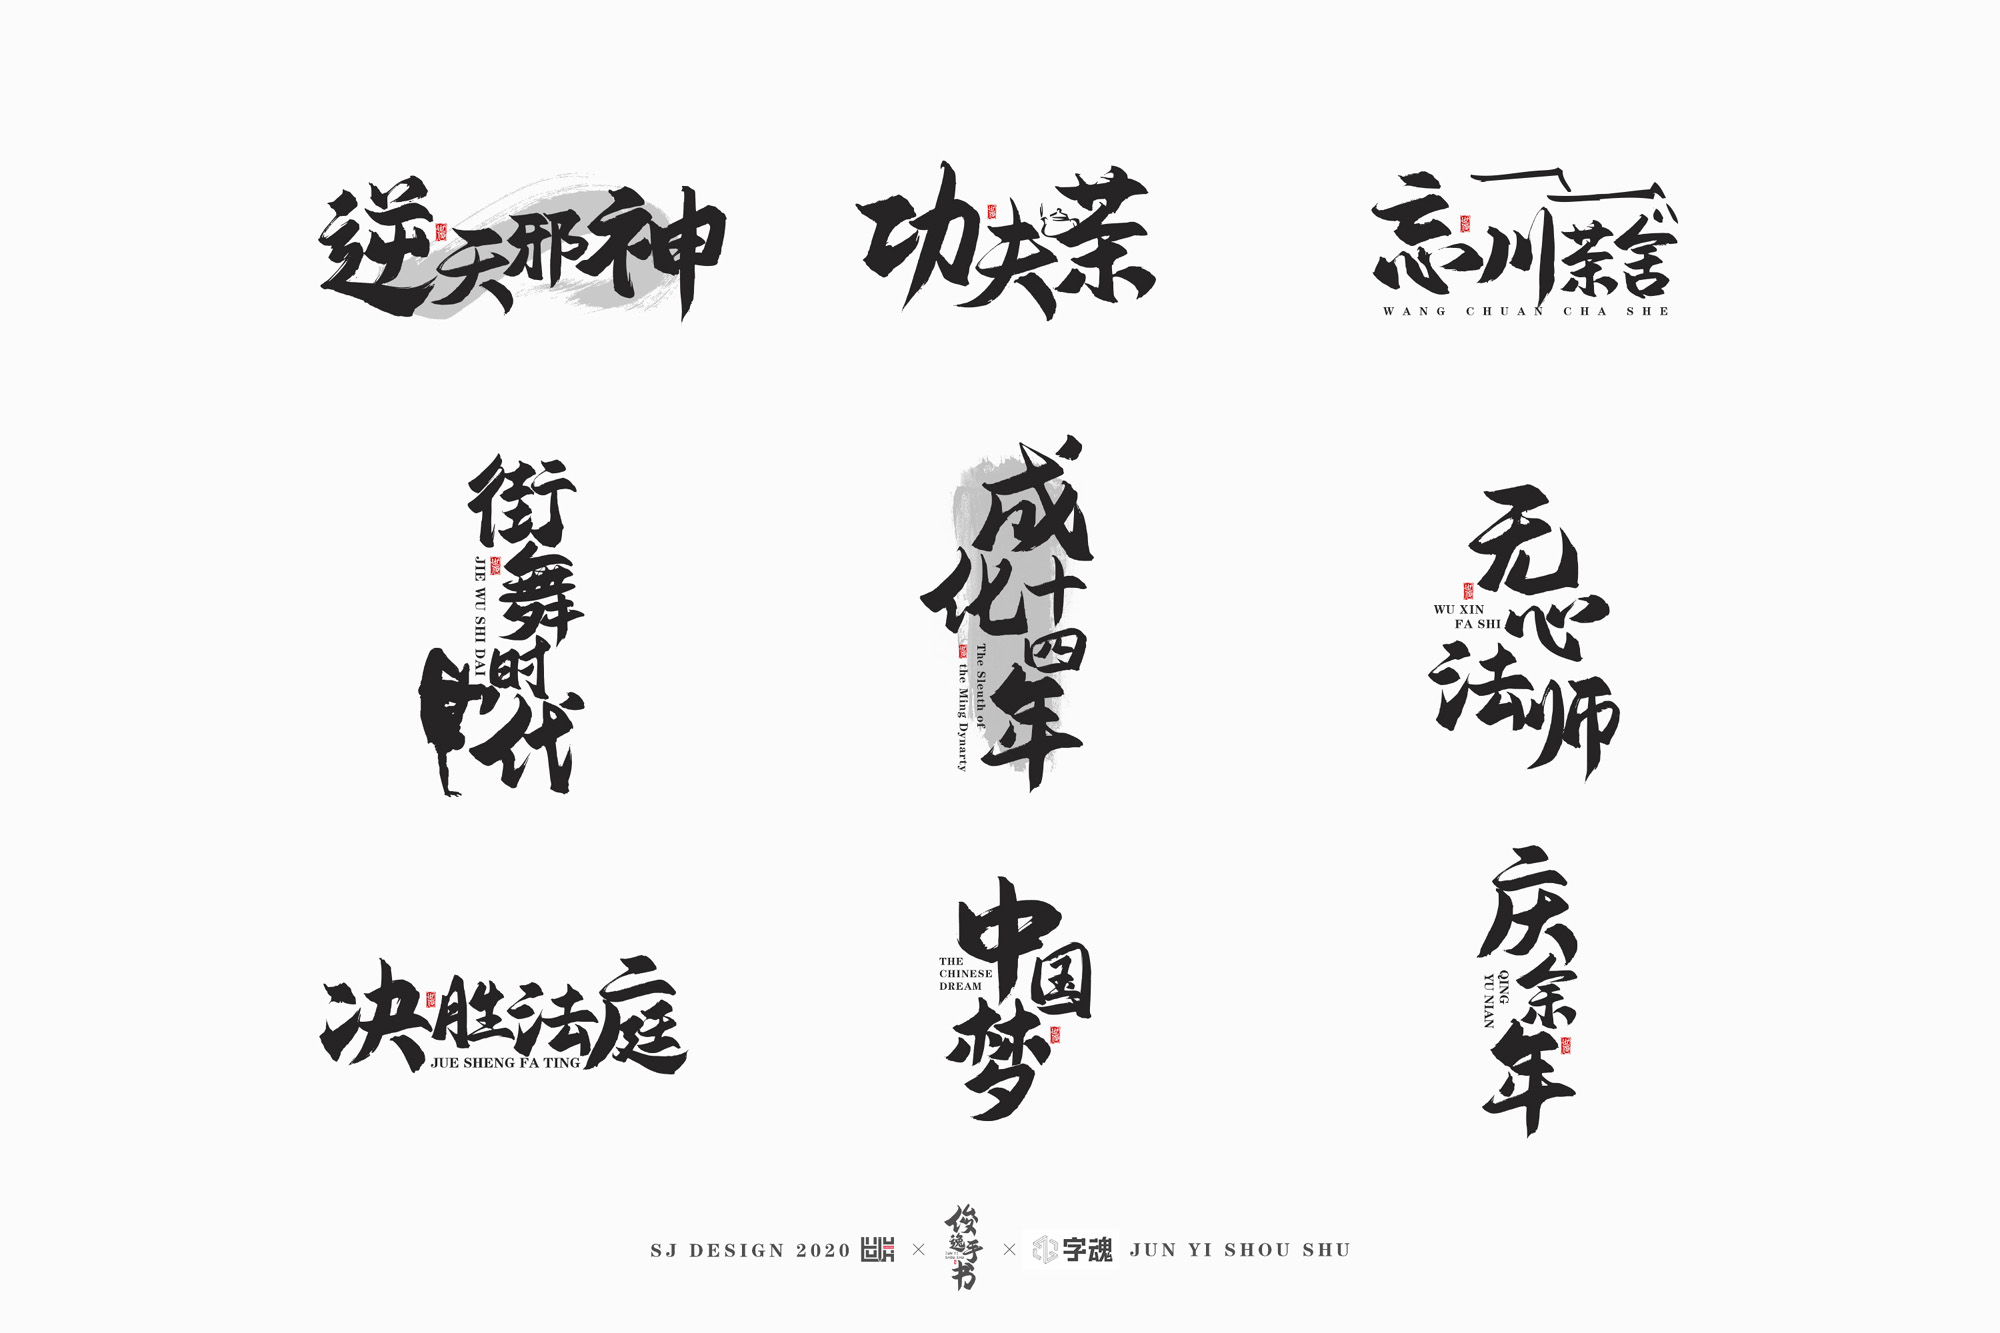 逆天邪神
功夫茶
忘川茶舍
WANG CHUAN CHA SHE
街舞时代
JIE WU SHI DAI
成化十四年
The Sleuth of
the Ming Dynarty
无心法师
WU XIN
FA SHI
决胜法庭
JUE SHENG FA TING
中国梦
THE
CHINESE
DREAM
庆余年
QING
YU NIAN
SJ DESIGN 2020
×
俊逸手书
×
字魂
JUN YI SHOU SHU